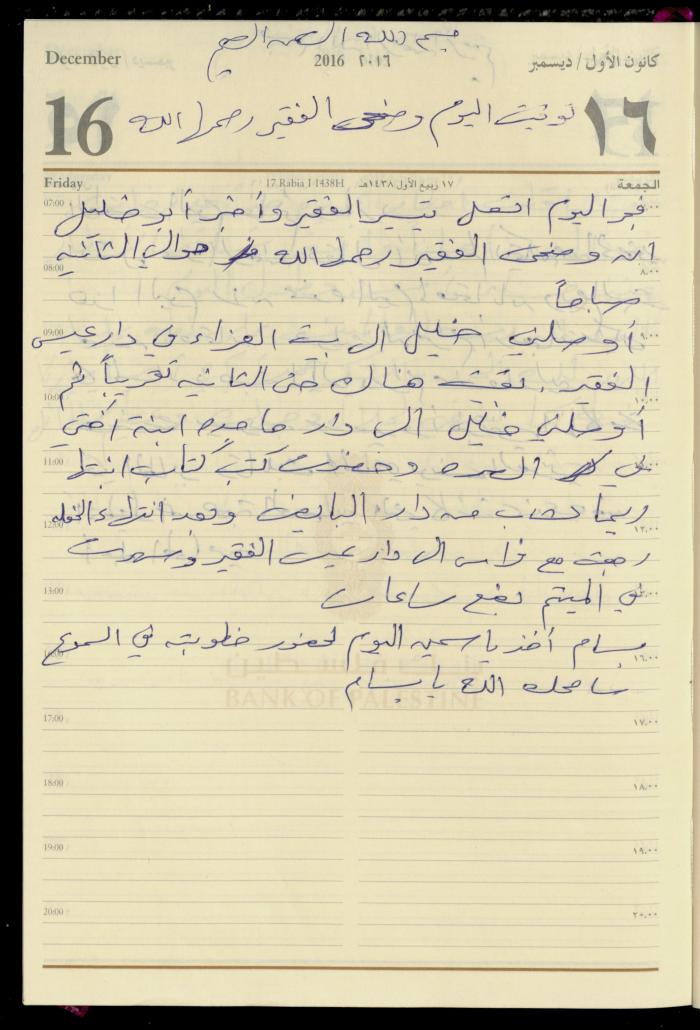 بسم الله الرحمن الرحيم
December
2016 ٢٠١٦
كانون الأول / ديسمبر
16
توفيت اليوم وضحى الفقير رحمها الله
١٦
Friday
17 Rabia I 1438H
١٧ ربيع الأول ١٤٣٨هـ
الجمعة
07:00
فجر اليوم اتصل تيسير الفقير وأخبر أبو خليل
ان وضحى الفقير رحمها الله حوالي الثانية
08:00
٨:٠٠
صباحاً
09:00
أوصلني خليل الى بيت العزاء في دار عيسى
الفقير. بقيت هناك حتى الثانية تقريباً ثم
10:00
أوصلني خليل الى دار ماجده ابنة أختي
11:00
في البيره وحضرت كتب كتاب ابنتها
ريما لشاب من دار البايض وبعد انتهاء الحفله
12:00
١٢:٠٠
رجعت مع فراس الى دار عيسى الفقير وسهرت
13:00
في الميتم بضع ساعات
بسام أخذ ياسمين اليوم لحضور خطوبته في السموع
١٦:٠٠
سامحك الله يا بسام
بنك فلسطين
BANK OF PALESTINE
17:00
١٧:٠٠
18:00
١٨:٠٠
19:00
١٩:٠٠
20:00
٢٠:٠٠